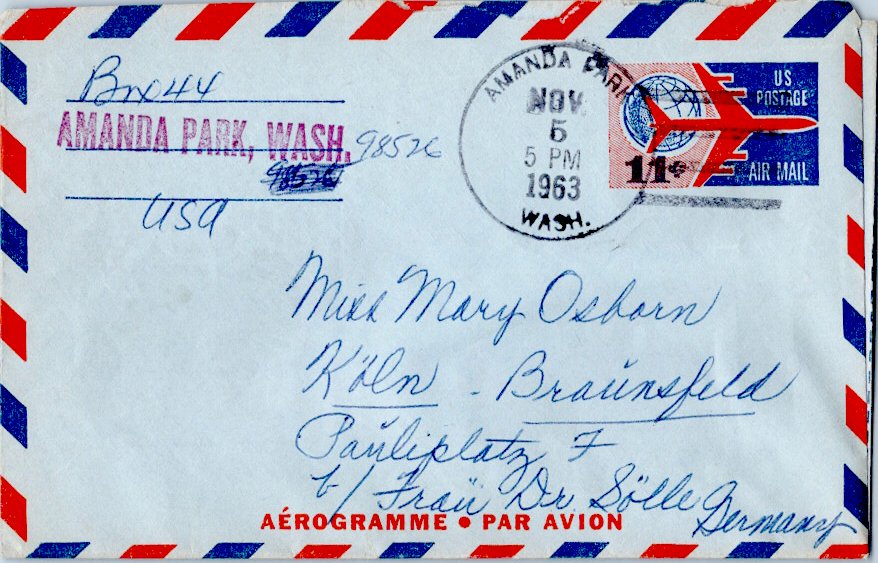 Box 44
AMANDA PARK, WASH. 98526
98526
USA
AMANDA PARK
NOV
5
5 PM
1963
WASH.
US
POSTAGE
11¢
AIR MAIL
Miss Mary Osborn
Köln - Braunsfeld
Pauliplatz 7
b/ Frau Dr Sölle
Germany
AÉROGRAMME • PAR AVION